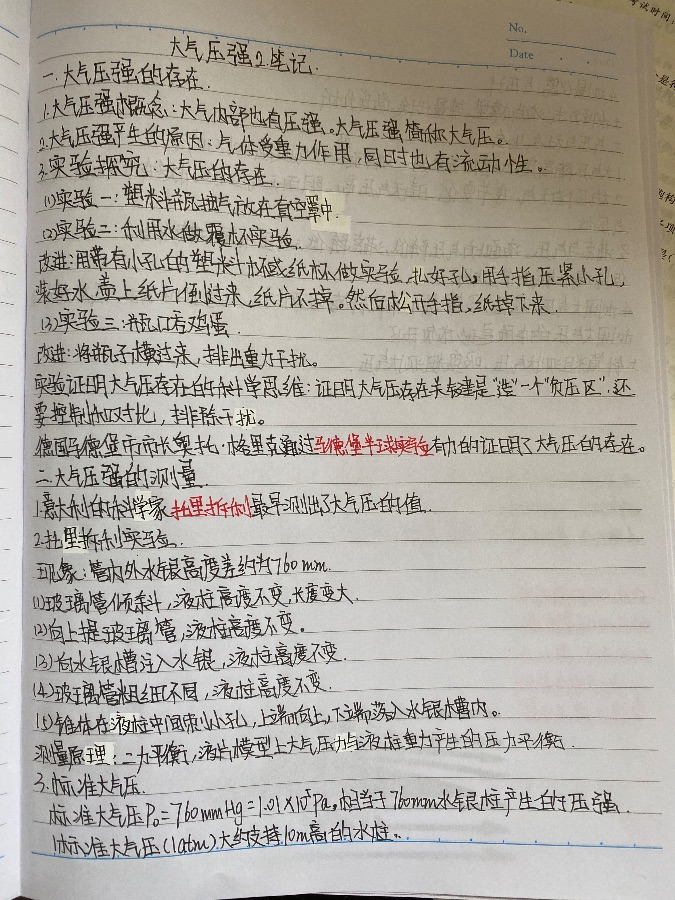 No.
Date
大气压强2.笔记
一.大气压强的存在.
1.大气压强概念:大气内部也有压强。大气压强简称大气压。
2.大气压强产生的原因:气体受重力作用,同时也有流动性。
3.实验探究:大气压的存在.
(1)实验一:塑料瓶抽气放在真空罩中.
(2)实验二:利用水做覆杯实验.
改进:用带有小孔的塑料杯或纸杯做实验,扎好孔,用手指压紧小孔,
装好水,盖上纸片倒过来,纸片不掉。然后松开手指,纸掉下来.
(3)实验三:瓶口吞鸡蛋.
改进:将瓶子横过来,排出重力干扰。
实验证明大气压存在的科学思维:证明大气压存在关键是"造"一个"负压区",还
要控制和对比,排除干扰。
德国马德堡市市长奥托·格里克通过马德堡半球实验有力的证明了大气压的存在。
二.大气压强的测量.
1.意大利的科学家托里拆利最早测出了大气压的值.
2.托里拆利实验.
现象:管内外水银高度差约为760mm.
(1)玻璃管倾斜,液柱高度不变,长度变大.
(2)向上提玻璃管,液柱高度不变。
(3)向水银槽注入水银,液柱高度不变.
(4)玻璃管粗细不同,液柱高度不变.
(5)锥体在液柱中间刺小孔,上端向上,下端落入水银槽内。
测量原理:二力平衡,液片模型上大气压力与液柱重力产生的压力平衡.
3.标准大气压.
标准大气压P₀=760mmHg=1.01×10⁵Pa,相当于760mm水银柱产生的压强.
1标准大气压(1atm)大约支持10m高的水柱.